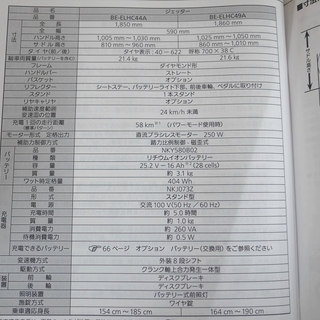 品名 ジェッター
品番 BE-ELHC44A BE-ELHC49A
寸法 全長 1,850 mm 1,860 mm
全幅 590 mm
ハンドル高さ 1,005 mm ~ 1,030 mm 1,025 mm ~ 1,050 mm
サドル高さ 810 mm ~ 960 mm 860 mm ~ 1,010 mm
タイヤ(前/後) タイヤ表示：40 - 622 呼称 700 X 38 C
総車両質量 21.4 kg 21.6 kg
フレーム ダイヤモンド形
ハンドルバー ストレート
バスケット オプション
リフレクター シートステー、バッテリーライト下部、前後車輪、ペダルに取り付け
スタンド 1本スタンド
リヤキャリヤ オプション
補助速度範囲 24 km/h 未満
変速段の位置
充電1回の走行距離 58 km (パワーモード使用時)
(標準パターン)
モーター形式 定格出力 直流ブラシレスモーター 250 W
補助力制御方式 踏力比例制御・磁歪式
バッテリー 品番 NKY580B02
種類 リチウムイオンバッテリー
容量 25.2 V − 16 Ah (28 cells)
質量 約 3.1 kg
ワット時定格量 404 Wh
充電器 品番 NKJ073Z
形式 スタンド型
電源 交流 100 V(50 Hz / 60 Hz)
充電時間 約 5.0 時間
質量 約 1.0 kg
消費電力 260 VA
待機消費電力 0.5 W
充電できるバッテリー 66 ページ オプション バッテリー(交換用)をご参照ください
変速機方式 外装 8 段シフト
駆動方式 クランク軸上合力発生一体型
装置 前 ディスクブレーキ
後 ディスクブレーキ
照明装置 バッテリー式前照灯
施錠方式 ワイヤ錠
乗車適応身長 154 cm ~ 185 cm 164 cm ~ 190 cm
サドル高さ